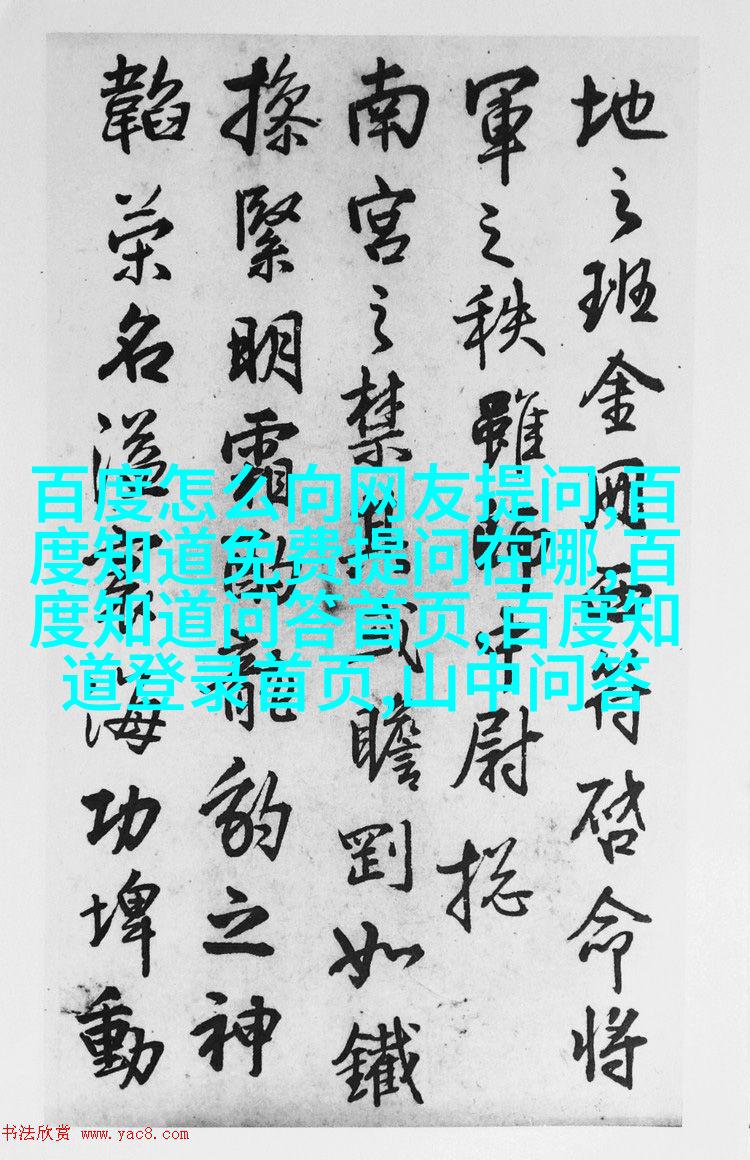 地之班金冊符啓命將
軍之秩雖尉捴
南宮之禁瞻剛如鐵
操緊明霜龍豹之神
韜榮名溢海功埤動
百度怎么向网友提问,百
度知道免费提问在哪,百
度知道问答首页,百度知
道登录首页,山中问答
书法欣赏 www.yac8.com